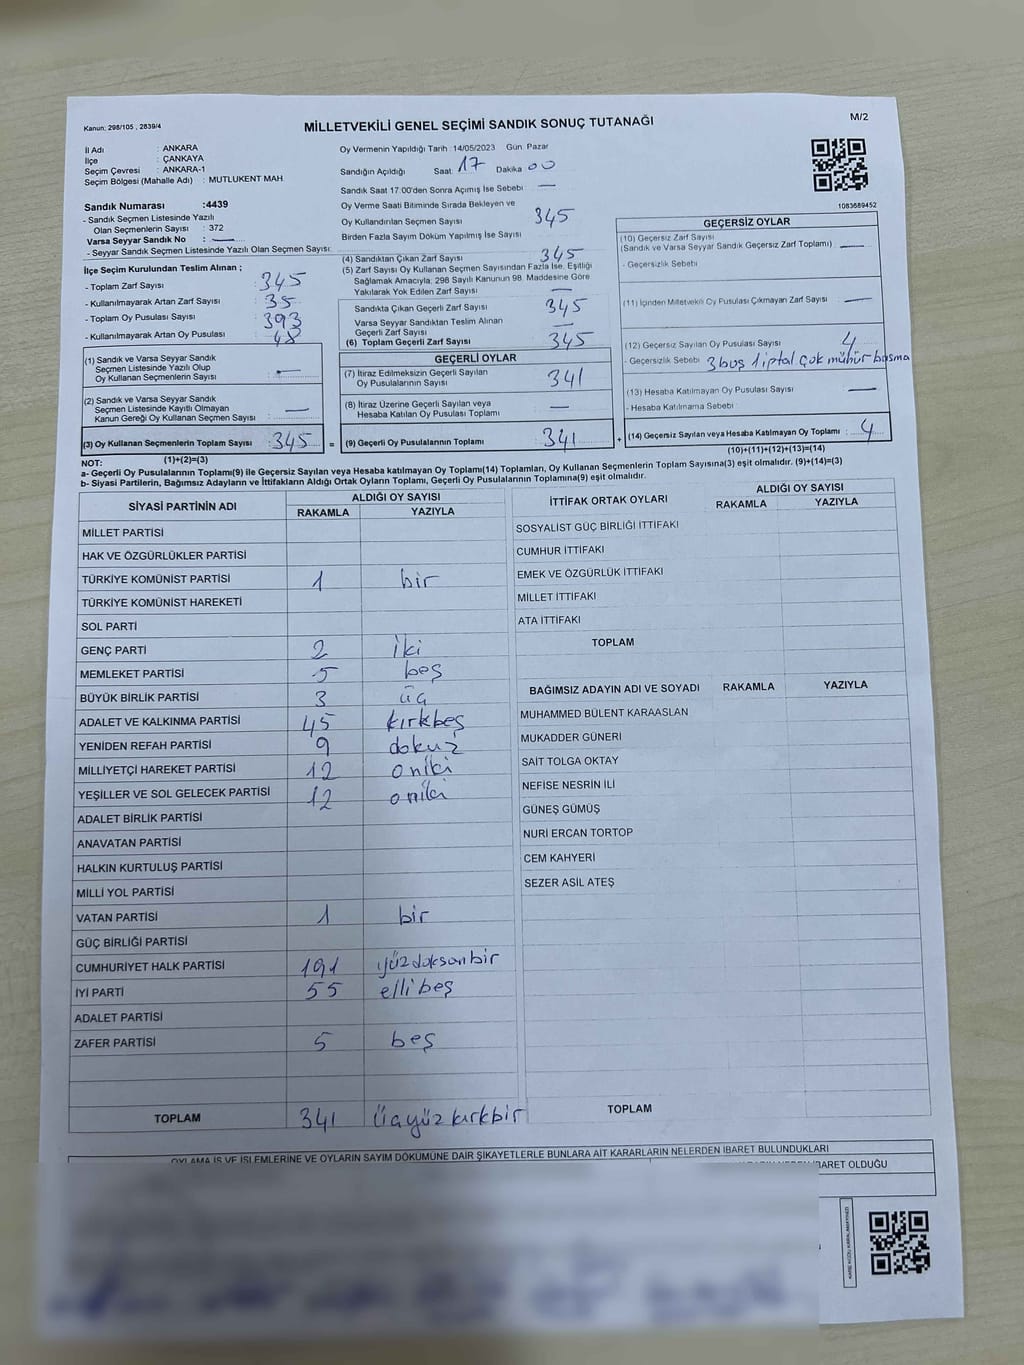 Kanun: 298/105 , 2839/4
MİLLETVEKİLİ GENEL SEÇİMİ SANDIK SONUÇ TUTANAĞI
M/2
İl Adı : ANKARA
İlçe : ÇANKAYA
Seçim Çevresi : ANKARA-1
Seçim Bölgesi (Mahalle Adı) : MUTLUKENT MAH.
Sandık Numarası :4439
- Sandık Seçmen Listesinde Yazılı
Olan Seçmenlerin Sayısı : 372
Varsa Seyyar Sandık No : —
- Seyyar Sandık Seçmen Listesinde Yazılı Olan Seçmen Sayısı:
İlçe Seçim Kurulundan Teslim Alınan ;
- Toplam Zarf Sayısı : 345
- Kullanılmayarak Artan Zarf Sayısı : 35
- Toplam Oy Pusulası Sayısı : 393
- Kullanılmayarak Artan Oy Pusulası : 48
(1) Sandık ve Varsa Seyyar Sandık
Seçmen Listesinde Yazılı Olup
Oy Kullanan Seçmenlerin Sayısı : —
(2) Sandık ve Varsa Seyyar Sandık
Seçmen Listesinde Kayıtlı Olmayan
Kanun Gereği Oy Kullanan Seçmen Sayısı : —
(3) Oy Kullanan Seçmenlerin Toplam Sayısı : 345
(1)+(2)=(3)
Oy Vermenin Yapıldığı Tarih : 14/05/2023 Gün: Pazar
Sandığın Açıldığı Saat: 17 Dakika 00
Sandık Saat 17:00'den Sonra Açımış İse Sebebi —
Oy Verme Saati Bitiminde Sırada Bekleyen ve
Oy Kullandırılan Seçmen Sayısı 345
Birden Fazla Sayım Döküm Yapılmış İse Sayısı
(4) Sandıktan Çıkan Zarf Sayısı 345
(5) Zarf Sayısı Oy Kullanan Seçmen Sayısından Fazla İse, Eşitliği
Sağlamak Amacıyla; 298 Sayılı Kanunun 98. Maddesine Göre
Yakılarak Yok Edilen Zarf Sayısı —
Sandıkta Çıkan Geçerli Zarf Sayısı 345
Varsa Seyyar Sandıktan Teslim Alınan
Geçerli Zarf Sayısı —
(6) Toplam Geçerli Zarf Sayısı 345
GEÇERLİ OYLAR
(7) İtiraz Edilmeksizin Geçerli Sayılan
Oy Pusulalarının Sayısı 341
(8) İtiraz Üzerine Geçerli Sayılan veya
Hesaba Katılan Oy Pusulası Toplamı —
= (9) Geçerli Oy Pusulalarının Toplamı 341
1083689452
GEÇERSİZ OYLAR
(10) Geçersiz Zarf Sayısı
(Sandık ve Varsa Seyyar Sandık Geçersiz Zarf Toplamı) —
- Geçersizlik Sebebi
(11) İçinden Milletvekili Oy Pusulası Çıkmayan Zarf Sayısı —
(12) Geçersiz Sayılan Oy Pusulası Sayısı 4
- Geçersizlik Sebebi 3 boş 1 iptal çok mühür basma
(13) Hesaba Katılmayan Oy Pusulası Sayısı —
- Hesaba Katılmama Sebebi
+ (14) Geçersiz Sayılan veya Hesaba Katılmayan Oy Toplamı : 4
(10)+(11)+(12)+(13)=(14)
NOT:
a- Geçerli Oy Pusulalarının Toplamı(9) ile Geçersiz Sayılan veya Hesaba katılmayan Oy Toplamı(14) Toplamları, Oy Kullanan Seçmenlerin Toplam Sayısına(3) eşit olmalıdır. (9)+(14)=(3)
b- Siyasi Partilerin, Bağımsız Adayların ve İttifakların Aldığı Ortak Oyların Toplamı, Geçerli Oy Pusulalarının Toplamına(9) eşit olmalıdır.
SİYASİ PARTİNİN ADI ALDIĞI OY SAYISI
RAKAMLA YAZIYLA
MİLLET PARTİSİ
HAK VE ÖZGÜRLÜKLER PARTİSİ
TÜRKİYE KOMÜNİST PARTİSİ 1 bir
TÜRKİYE KOMÜNİST HAREKETİ
SOL PARTİ
GENÇ PARTİ 2 iki
MEMLEKET PARTİSİ 5 beş
BÜYÜK BİRLİK PARTİSİ 3 üç
ADALET VE KALKINMA PARTİSİ 45 kırkbeş
YENİDEN REFAH PARTİSİ 9 dokuz
MİLLİYETÇİ HAREKET PARTİSİ 12 oniki
YEŞİLLER VE SOL GELECEK PARTİSİ 12 oniki
ADALET BİRLİK PARTİSİ
ANAVATAN PARTİSİ
HALKIN KURTULUŞ PARTİSİ
MİLLİ YOL PARTİSİ
VATAN PARTİSİ 1 bir
GÜÇ BİRLİĞİ PARTİSİ
CUMHURİYET HALK PARTİSİ 191 yüzdoksanbir
İYİ PARTİ 55 ellibeş
ADALET PARTİSİ
ZAFER PARTİSİ 5 beş
TOPLAM 341 üçyüzkırkbir
İTTİFAK ORTAK OYLARI ALDIĞI OY SAYISI
RAKAMLA YAZIYLA
SOSYALİST GÜÇ BİRLİĞİ İTTİFAKI
CUMHUR İTTİFAKI
EMEK VE ÖZGÜRLÜK İTTİFAKI
MİLLET İTTİFAKI
ATA İTTİFAKI
TOPLAM
BAĞIMSIZ ADAYIN ADI VE SOYADI RAKAMLA YAZIYLA
MUHAMMED BÜLENT KARAASLAN
MUKADDER GÜNERİ
SAİT TOLGA OKTAY
NEFİSE NESRİN İLİ
GÜNEŞ GÜMÜŞ
NURİ ERCAN TORTOP
CEM KAHYERİ
SEZER ASİL ATEŞ
TOPLAM
OYLAMA İŞ VE İŞLEMLERİNE VE OYLARIN SAYIM DÖKÜMÜNE DAİR ŞİKAYETLERLE BUNLARA AİT KARARLARIN NELERDEN İBARET BULUNDUKLARI
İBARET OLDUĞU
KARE KODU KARALAMAYINIZ!